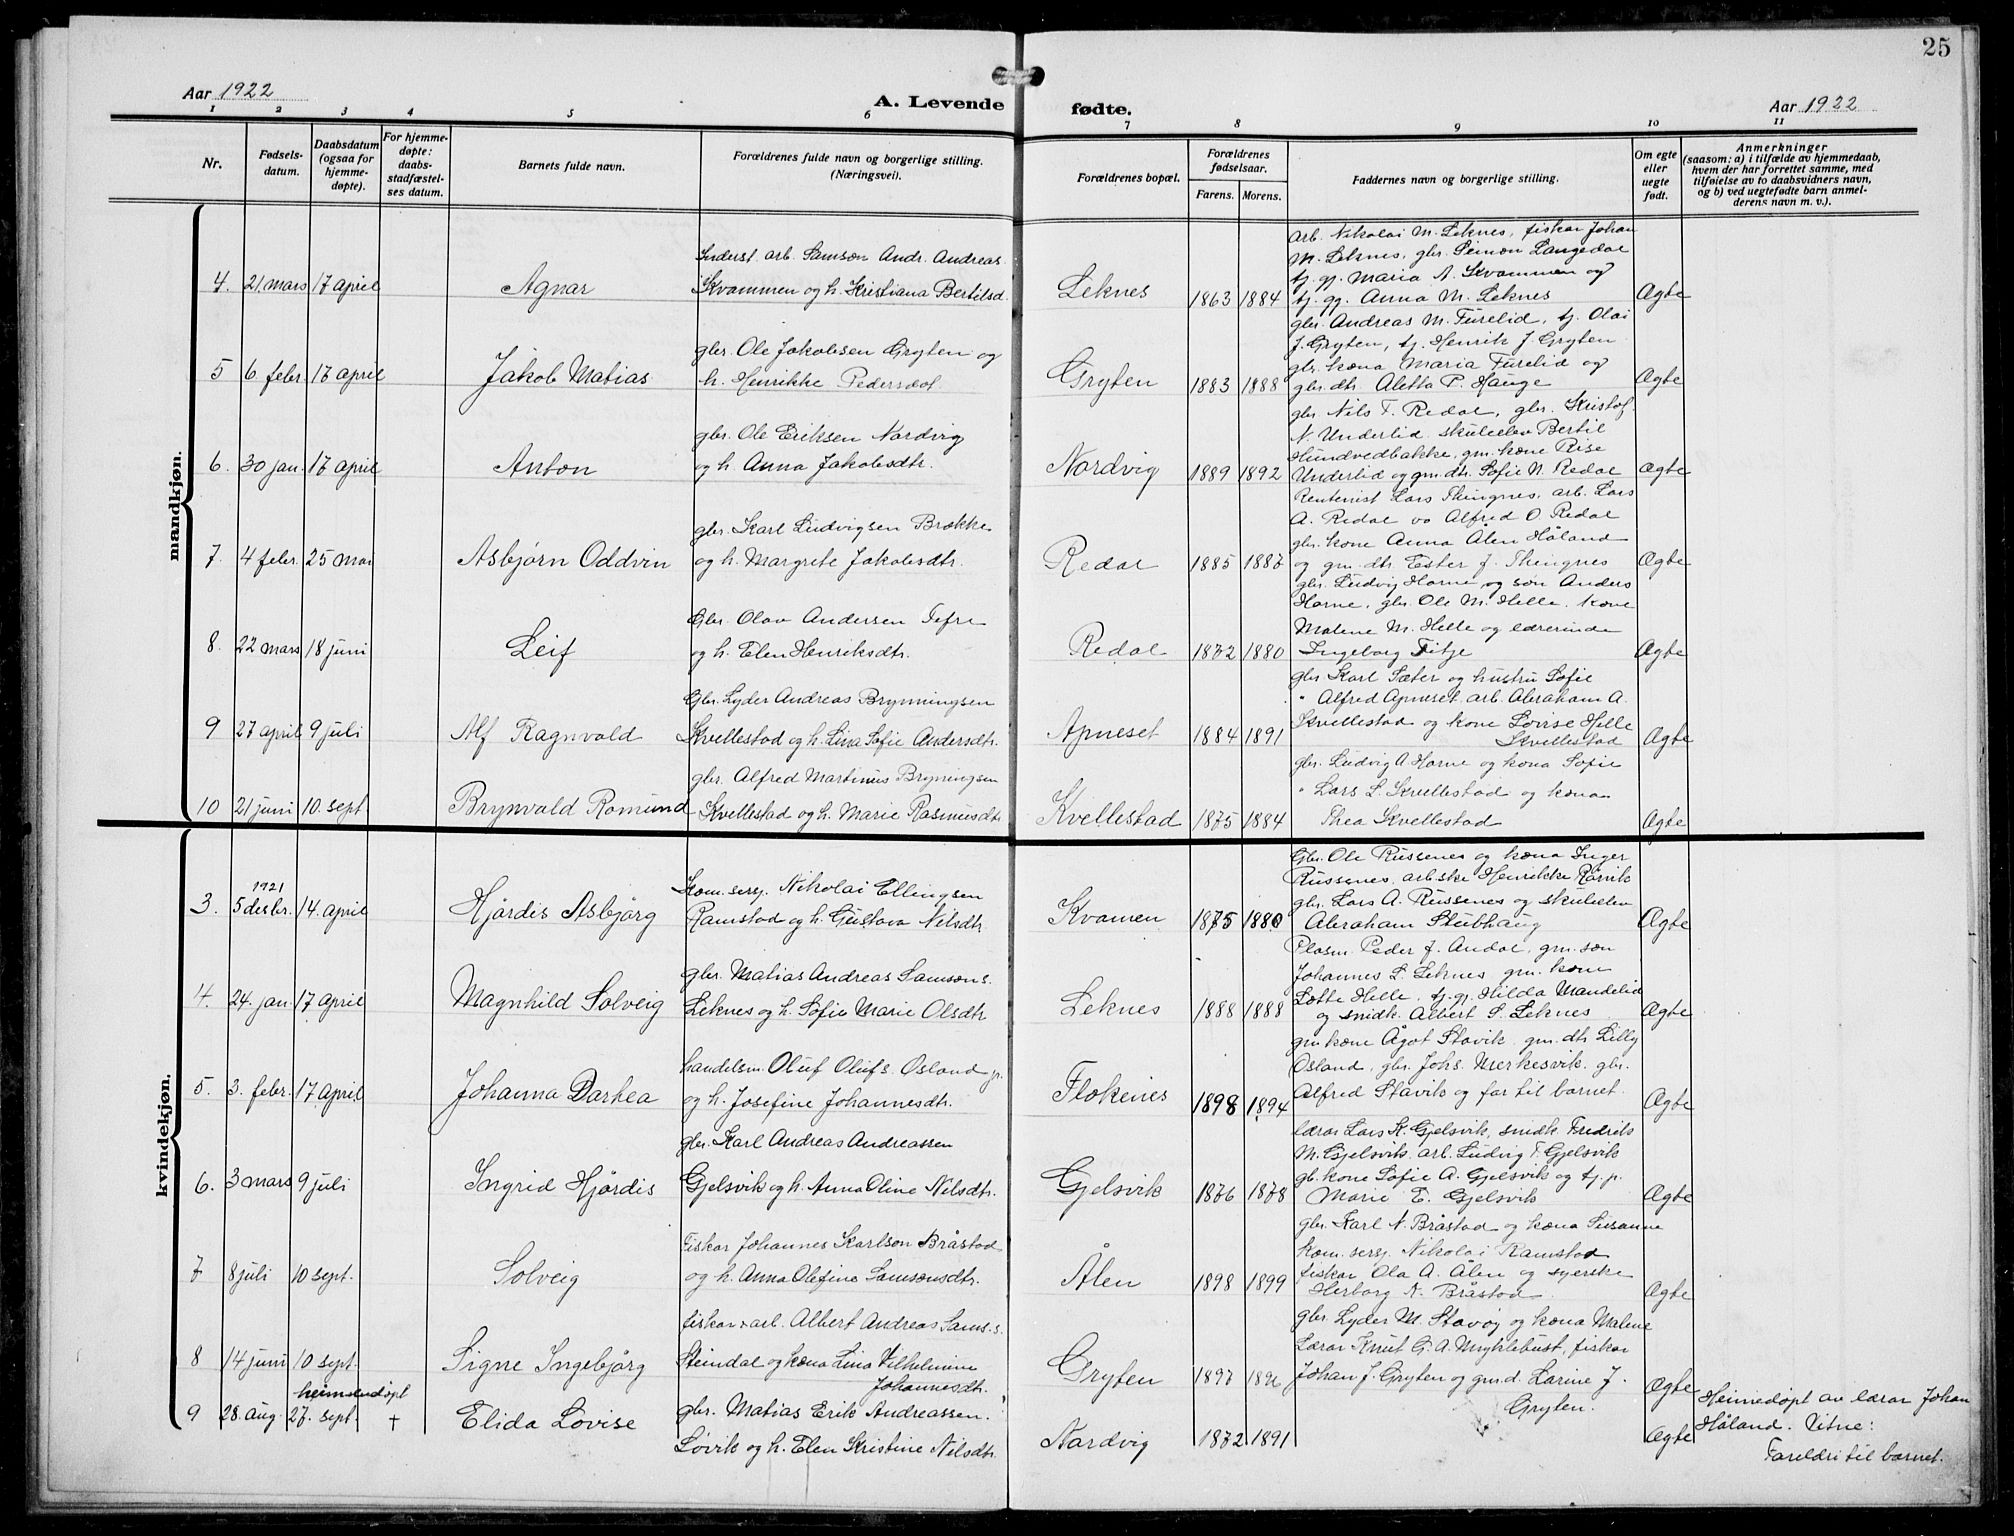 25
Aar 1922
A. Levende fødte.
Aar 1922
1 2 3 4 5 6 7 8 9 10 11
Nr.
Fødsels-
datum.
Daabsdatum
(ogsaa for
hjemme-
døpte).
For hjemme-
døpte:
daabs-
stadfæstel-
ses datum.
Barnets fulde navn.
Forældrenes fulde navn og borgerlige stilling.
(Næringsvei).
Forældrenes bopæl.
Forældrenes
fødselsaar.
Farens. Morens.
Faddernes navn og borgerlige stilling.
Om egte
eller
uegte
født.
Anmerkninger
(saasom: a) i tilfælde av hjemmedaab,
hvem der har forrettet samme, med
tilføielse av to daabsvidners navn,
og b) ved uegtefødte barn anmel-
derens navn m. v.).
mandkjøn.
4. 21 mars 17 april Agnar
Inderst. arb. Samson Andr. Andreas.
Kvammen og h. Kristiana Bertilsd.
Leknes 1863 1884
arb. Nikolai M. Leknes, fiskar Johan
M. Leknes, gbr. Simon Langedal
tj. gj. Maria A. Kvammen og
tj. gj. Anna M. Leknes
Ægte
5 6. febr. 17 april Jakob Matias
gbr. Ole Jakobsen Gryten og
h. Henrikke Pedersdot.
Gryten 1883 1888
gbr. Andreas M. Furelid, tj. Olai
J. Gryten, tj. Henrik J. Gryten
gbr. kona Maria Furelid og
gbr. dtr. Aletta P. Hauge
Ægte
6. 30 jan. 17 april Anton
gbr. Ole Eriksen Nordvig
og h. Anna Jakobsdtr.
Nordvig 1889 1892
gbr. Nils T. Redal, gbr. Kristof.
N. Underlid, skuleelev Bertil
Hundvedbakke, gm. kone Rise
Underlid og gm. dtr. Sofie N. Redal
Ægte
7. 4 febr. 25 mai Asbjørn Oddvin
gbr. Karl Ludvigsen Brække
og h. Margrete Jakobsdtr.
Redal 1885 1887
Rentenist Lars Thingnes, arb. Lars
A. Redal og Alfred O. Redal
gbr. kone Anna Ålen Håland
og gm. dtr. Ester J. Thingnes
Ægte
8. 22 mars 18 juni Leif
Gbr. Olav Andersen Tefre
og h. Elen Henriksdtr.
Redal 1872 1880
gbr. Ludvig Horne og son Anders
Horne, gbr. Ole M. Helle, kone
Malene M. Helle og lærerinde
Ingeborg Fitje
Ægte
9 27 april 9 juli Alf Ragnvald
Gbr. Lyder Andreas Brynningsen
Kvellestad og h. Lina Sofie Andersdtr.
Apneset 1884 1891
gbr Karl Sæter og hustru Sofie
" Alfred Apneset arb. Abraham A.
Kvellestad og kone Lovise Helle
Kvellestad
Ægte
10 21 juni 10. sept. Brynvald Romund
gbr. Alfred Martinus Bryningsen
Kvellestad og h. Marie Rasmusdtr
Kvellestad 1875 1884
gbr. Ludvig A Horne og kona Sofie
" Lars L. Kvellestad og kona
Thea Kvellestad
Ægte
kvindekjøn.
3. 1921
5 desbr. 14. april Hjørdis Asbjørg
Kom. sersj. Nikolai Ellingsen
Ramstad og h. Gustava Nilsdtr.
Kvamen 1875 1880
Gbr. Ole Russenes og kona Inger
Russenes, arbske Henrikke Rørvik
gbr. Lars A. Russenes og skuleelev
Abraham Stubhaug
Ægte
4. 24. jan. 17 april Magnhild Solveig
gbr. Matias Andreas Samsons.
Leknes og h. Sofie Marie Olsdtr
Leknes 1888 1888
Plasm. Peder J. Andal, gm. søn
Johannes S. Leknes, gm. kone
Lotte Helle, tj. gj. Hilda Mandelid
og snidk. Albert S. Leknes
Ægte
5. 3. febr. 17 april Johanna Dorthea
handelsm. Oluf Olufs. Osland
og h. Josefine Johannesdtr.
Flokenes 1898 1894
gm kone Ågot Stavik gm. dtr Lilly
Osland, gbr. Johs. Merkesvik, gbr.
Alfred Stavik og far til barnet.
Ægte
6. 3 mars 9 juli Ingrid Hjørdis
gbr. Karl Andreas Andreassen
Gjelsvik og h. Anna Oline Nilsdtr.
Gjelsvik 1876 1878
lærar Lars K. Gjelsvik, snidk Fredrik
M. Gjelsvik, arb. Ludvig T. Gjelsvik
gb. kone Sofie A. Gjelsvik og tj. p.
Marie E. Gjelsvik
Ægte
7 8 juli 10 sept. Solveig
Fiskar Johannes Karlson Bråstad
og h. Anna Olefine Samsonsdtr.
Ålen 1898 1899
gbr. Karl N. Bråstad og kona Susanna
kom. sersj. Nikolai Ramstad
fiskar Ola A. Ålen og syerske
Herborg N. Bråstad
Ægte
8 14 juni 10 sept. Signe Ingebjørg
fiskar arb. Albert Andreas Sams. s.
Steindal og kona Lina Vilhelmine
Johannesdtr.
Gryten 1897 1896
gbr. Lyder M. Stavøy og kona Malene
Lærar Knut G. A. Myklebust, fiskar
Johan J. Gryten og gm. d. Larine J.
Gryten.
Ægte
9 28. aug. heimendøpt
27. sept. + Elida Lovise
gbr. Matias Erik Andreassen.
Løvik og h. Elen Kristine Nilsdtr.
Nordvig 1872 1891
Ægte
Heimedøpt av lærar Johan
Håland. Vitne:
Foreldri til barnet.